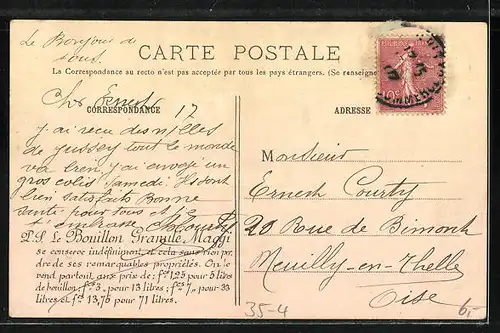 Le Bonjour de
tous.
CARTE POSTALE
La Correspondance au recto n'est pas acceptée par tous les pays étrangers. (Se renseigne
Cher Ernest
CORRESPONDANCE
17
j'ai reçu des nlles
de Jussey tout le monde
va bien, j'ai envoyé un
gros colis Samedi. Ils sont
bien satisfaits Bonne
santé pour tous et je
t'embrasse Courty
P.S. Le Bouillon Granulé Maggi
se conserve indéfiniment et cela sans rien per-
dre de ses remarquables propriétés. On le
vend partout aux prix de: fcs 1,25 pour 5 litres
de bouillon, fcs 3,- pour 13 litres; fcs 7,- pour 33
litres et fcs 13,75 pour 71 litres.
ADRESSE
10c
Monsieur
Ernest Courty
20 Rue de Bimont
Neuilly-en-Thelle
Oise
35-4
6,-